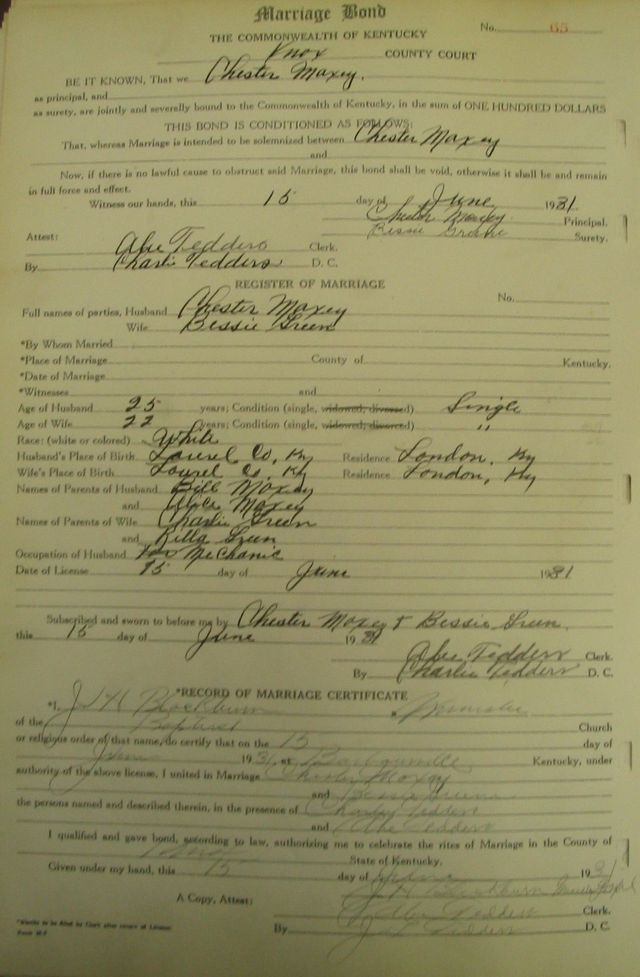 Marriage Bond
No. 65
THE COMMONWEALTH OF KENTUCKY
Knox COUNTY COURT
BE IT KNOWN, That we Chester Maxey.
as principal, and
as surety, are jointly and severally bound to the Commonwealth of Kentucky, in the sum of ONE HUNDRED DOLLARS
THIS BOND IS CONDITIONED AS FOLLOWS:
That, whereas Marriage is intended to be solemnized between Chester Maxey
and
Now, if there is no lawful cause to obstruct said Marriage, this bond shall be void, otherwise it shall be and remain
in full force and effect.
Witness our hands, this 15 day of June 1931
Chester Maxey Principal.
Bessie Greene Surety.
Attest: Abe Tedders Clerk.
By Charlie Tedders D. C.
REGISTER OF MARRIAGE
No.
Full names of parties, Husband Chester Maxey
Wife Bessie Green
*By Whom Married
*Place of Marriage County of Kentucky.
*Date of Marriage
*Witnesses and
Age of Husband 25 years; Condition (single, widowed, divorced) Single
Age of Wife 22 years; Condition (single, widowed, divorced) "
Race: (white or colored) White
Husband's Place of Birth Laurel Co, Ky Residence London, Ky
Wife's Place of Birth Laurel Co, Ky Residence London, Ky
Names of Parents of Husband Bill Maxey
and Alice Maxey
Names of Parents of Wife Charlie Green
and Rilla Green
Occupation of Husband Mechanic
Date of License 15 day of June 1931
Subscribed and sworn to before me by Chester Maxey & Bessie Green.
this 15 day of June 1931
Abe Tedders Clerk.
By Charlie Tedders D. C.
*RECORD OF MARRIAGE CERTIFICATE
*I, J H Blackburn a Minister
of the Baptist Church
or religious order of that name, do certify that on the 15 day of
June 1931 at Barbourville Kentucky, under
authority of the above license, I united in Marriage Chester Maxey
and Bessie Greene
the persons named and described therein, in the presence of Charley Tedders
and Abe Tedders
I qualified and gave bond, according to law, authorizing me to celebrate the rites of Marriage in the County of
Knox State of Kentucky.
Given under my hand, this 15 day of June 1931
J. H. Blackburn
A Copy, Attest: Abe Tedders Clerk.
By Tedders D. C.